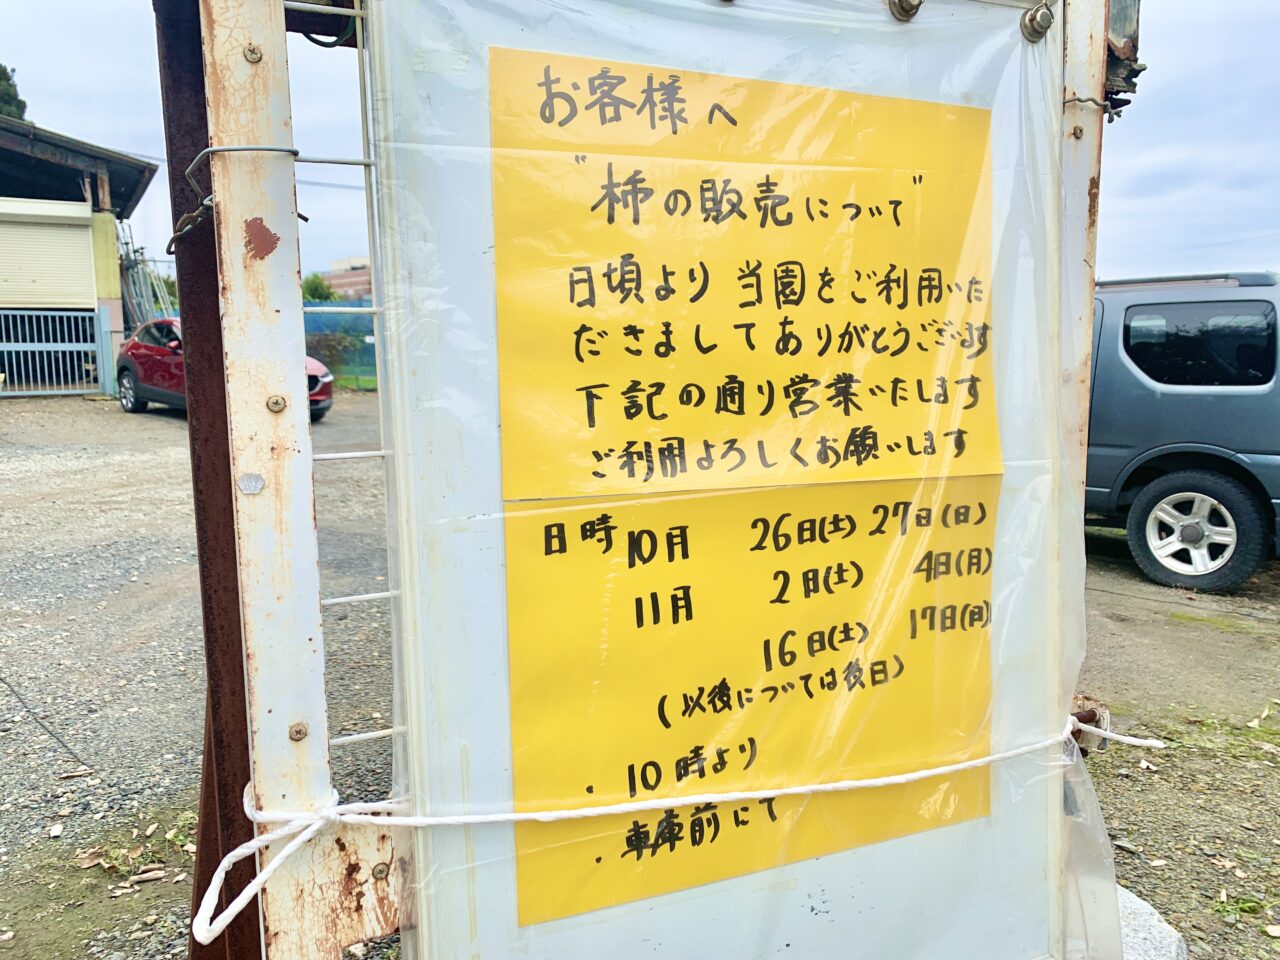 お客様へ
"柿の販売について"
日頃より当園をご利用いた
だきましてありがとうございます
下記の通り営業いたします
ご利用よろしくお願いします
日時 10月 26日(土) 27日(日)
11月 2日(土) 4日(月)
16日(土) 17日(日)
(以後については後日)
・10時より
・車庫前にて